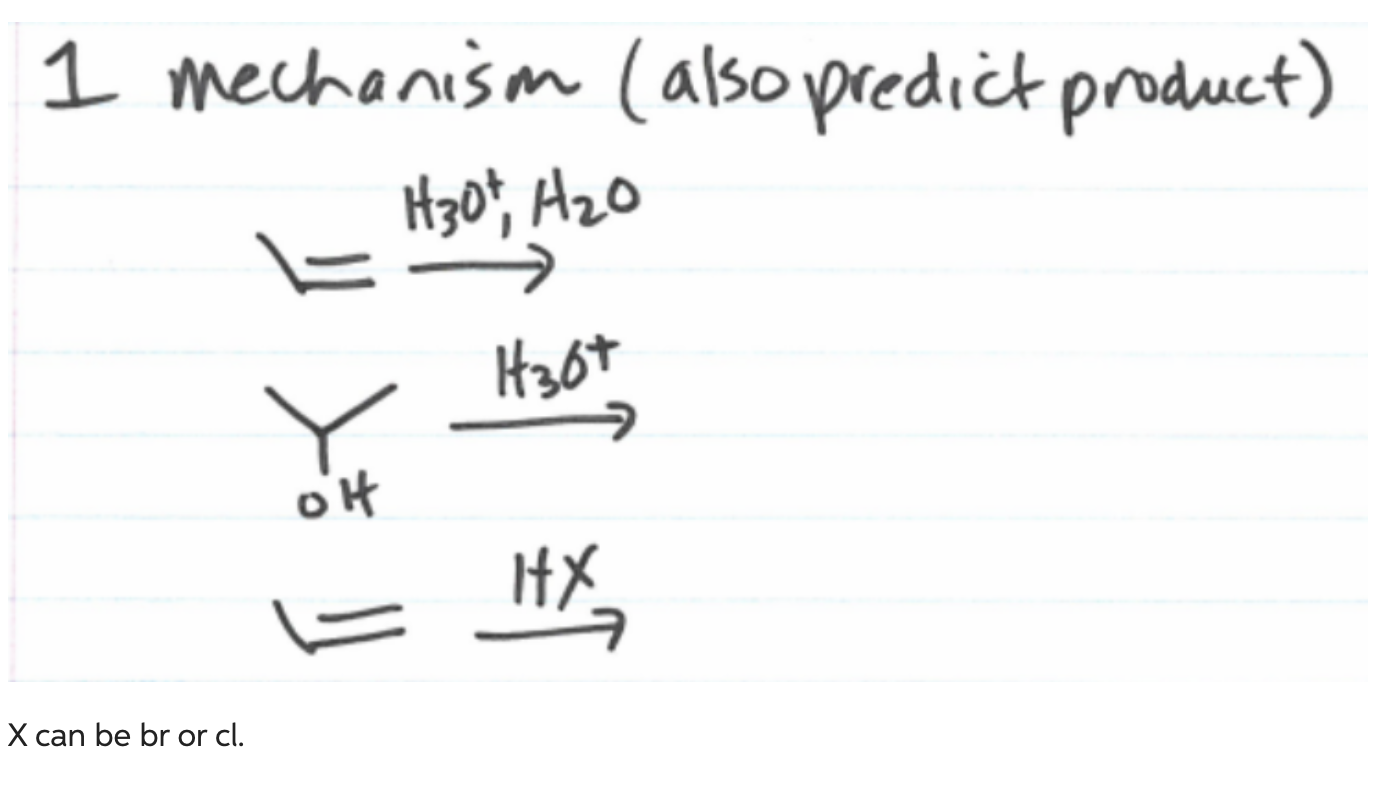 1 mechanism (also predict product)
H3O+, H2O
H3O+
OH
HX
X can be br or cl.